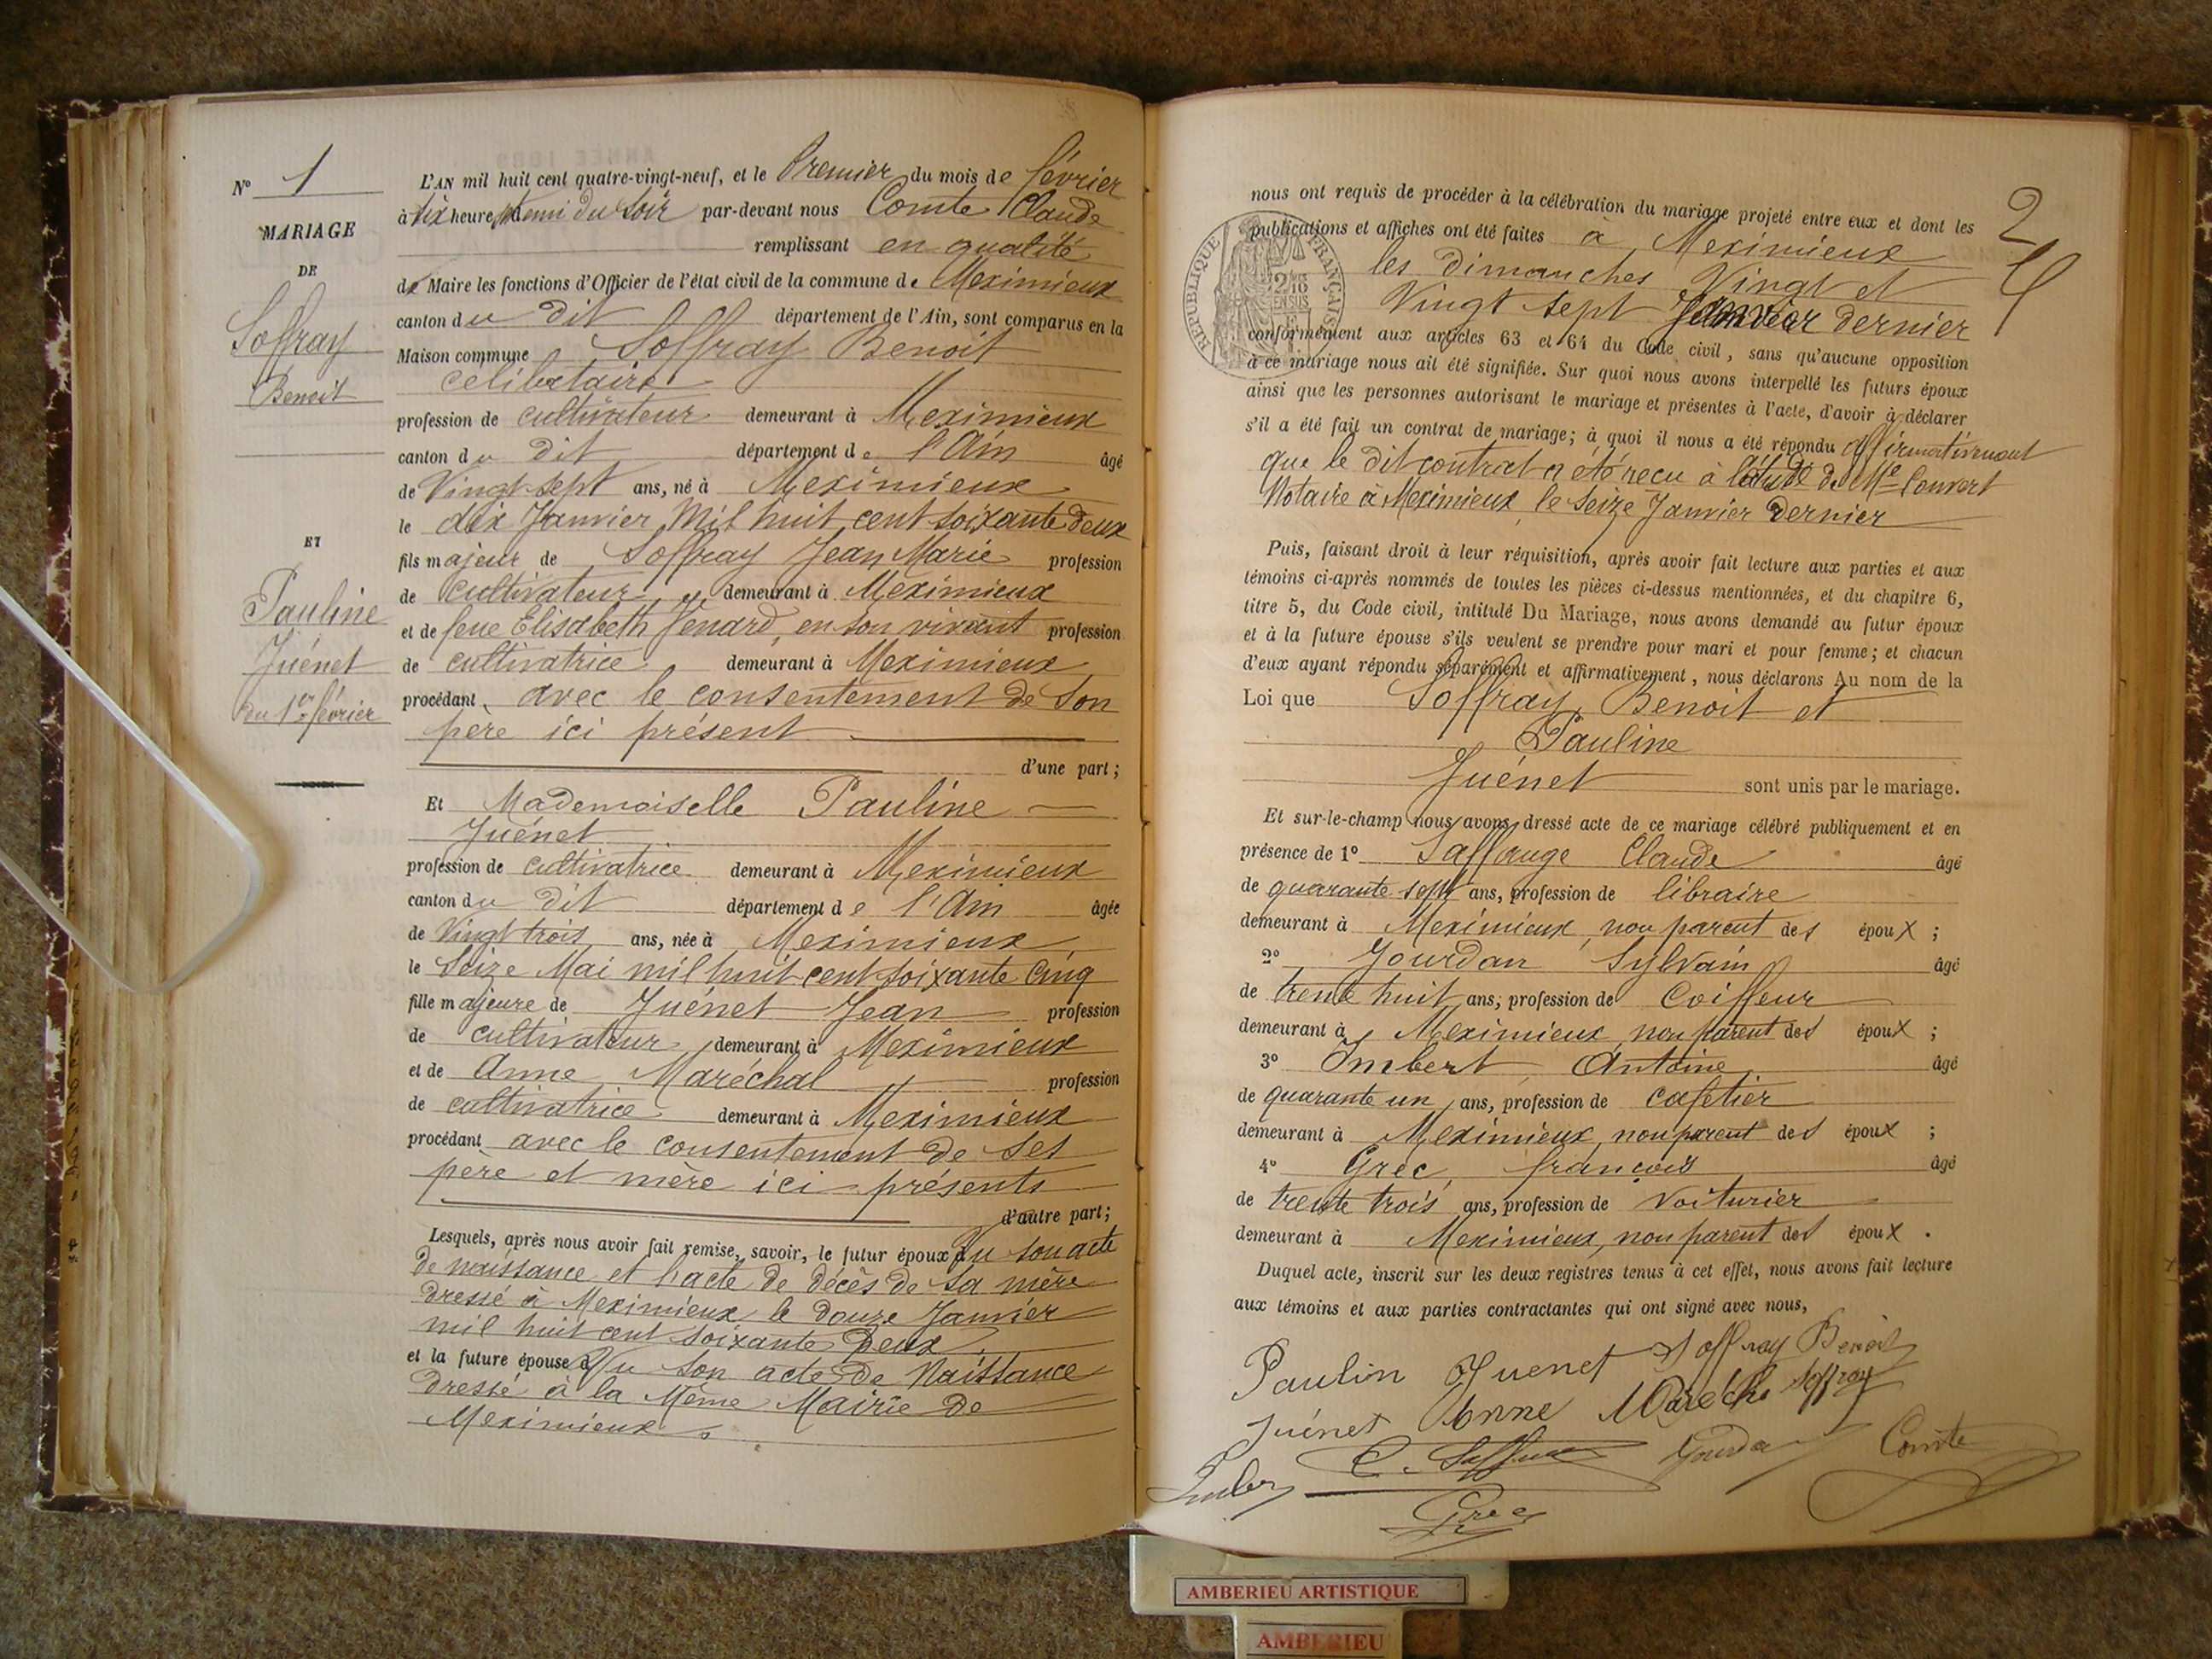 N° 1
MARIAGE
DE
Soffray
Benoit
ET
Pauline
Juénet
du 1er février
L'AN mil huit cent quatre-vingt-neuf, et le Premier du mois de février
à six heure demi du soir par-devant nous Comte Claude
remplissant en qualité
de Maire les fonctions d'Officier de l'état civil de la commune de Meximieux
canton du dit département de l'Ain, sont comparus en la
Maison commune Soffray Benoit
célibataire
profession de cultivateur demeurant à Meximieux
canton du dit département de l'Ain âgé
de Vingt sept ans, né à Meximieux
le dix Janvier Mil huit cent soixante deux
fils majeur de Soffray Jean Marie profession
de Cultivateur demeurant à Meximieux
et de feue Elisabeth Jénard, en son vivant profession
de cultivatrice demeurant à Meximieux
procédant avec le consentement de son
père ici présent
d'une part;
Et Mademoiselle Pauline
Juénet
profession de cultivatrice demeurant à Meximieux
canton du dit département de l'Ain âgée
de Vingt trois ans, née à Meximieux
le Seize Mai mil huit cent soixante Cinq
fille majeure de Juénet Jean profession
de cultivateur demeurant à Meximieux
et de Anne Maréchal profession
de cultivatrice demeurant à Meximieux
procédant avec le consentement de ses
père et mère ici présents
d'autre part;
Lesquels, après nous avoir fait remise, savoir, le futur époux Vu son acte
de naissance et l'acte de décès de sa mère
dressé à Meximieux le douze Janvier
mil huit cent soixante Deux
et la future épouse Vu son acte de Naissance
dressé à la Même Mairie de
Meximieux.
nous ont requis de procéder à la célébration du mariage projeté entre eux et dont les
publications et affiches ont été faites à Meximieux
les dimanches Vingt et
Vingt sept Janvier dernier
conformément aux articles 63 et 64 du Code civil, sans qu'aucune opposition
à ce mariage nous ait été signifiée. Sur quoi nous avons interpellé les futurs époux
ainsi que les personnes autorisant le mariage et présentes à l'acte, d'avoir à déclarer
s'il a été fait un contrat de mariage; à quoi il nous a été répondu affirmativement
que le dit contrat a été reçu à l'étude de Me Convert
Notaire à Meximieux le Seize Janvier Dernier
2
RÉPUBLIQUE FRANÇAISE
Puis, faisant droit à leur réquisition, après avoir fait lecture aux parties et aux
témoins ci-après nommés de toutes les pièces ci-dessus mentionnées, et du chapitre 6,
titre 5, du Code civil, intitulé Du Mariage, nous avons demandé au futur époux
et à la future épouse s'ils veulent se prendre pour mari et pour femme; et chacun
d'eux ayant répondu séparément et affirmativement, nous déclarons Au nom de la
Loi que Soffray Benoit et
Pauline
Juénet sont unis par le mariage.
Et sur-le-champ nous avons dressé acte de ce mariage célébré publiquement et en
présence de 1° Saffange Claude âgé
de quarante sept ans, profession de libraire
demeurant à Meximieux, non parent des époux;
2° Jourdan Sylvain âgé
de trente huit ans, profession de Coiffeur
demeurant à Meximieux, non parent des époux;
3° Imbert Antoine âgé
de quarante un ans, profession de cafetier
demeurant à Meximieux, non parent des époux;
4° Grec françois âgé
de trente trois ans, profession de Voiturier
demeurant à Meximieux, non parent des époux.
Duquel acte, inscrit sur les deux registres tenus à cet effet, nous avons fait lecture
aux témoins et aux parties contractantes qui ont signé avec nous,
Paulin Juenet Soffray Benoit
Juénet Anne Maréchal Soffray
C. Jourdan Comte
Grec
AMBERIEU ARTISTIQUE
AMBERIEU